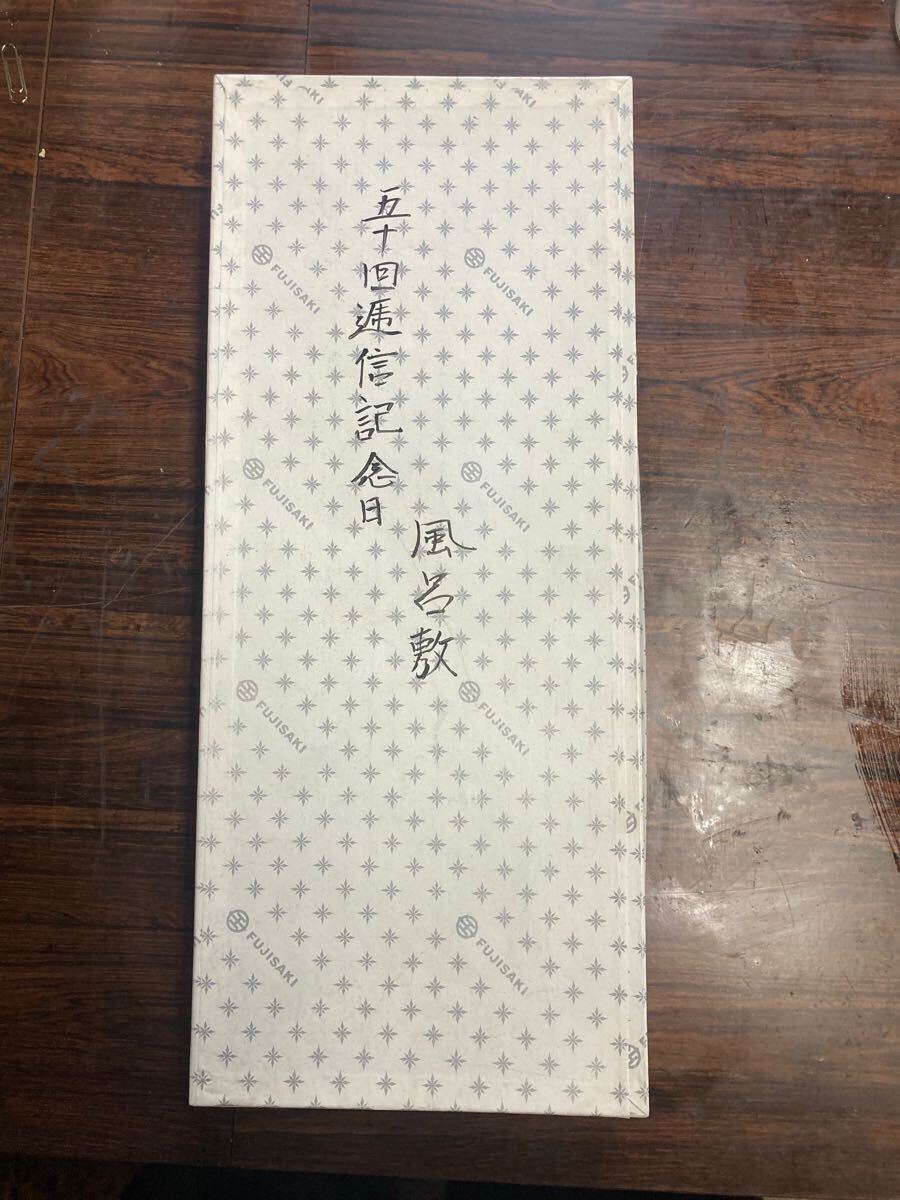 五十回逓信記念日
風呂敷
FUJISAKI
FUJISAKI
FUJISAKI
FUJISAKI
FUJISAKI
FUJISAKI
FUJISAKI
FUJISAKI